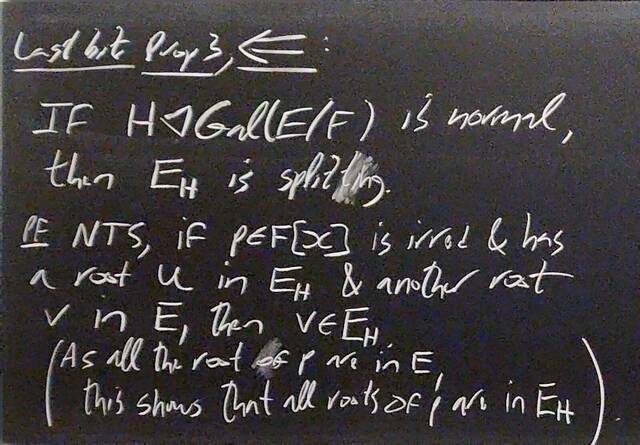 Last bit Prop 3, ⇐ :
If H ◁ Gal(E/F) is normal,
then E_H is splitting.
PF NTS, if p∈F[x] is irred & has
a root u in E_H & another root
v in E, then v∈E_H
(As all the root of p are in E,
this shows that all roots of p are in E_H)